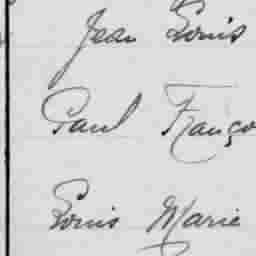 Jean Louis
Paul Franço
Louis Marie